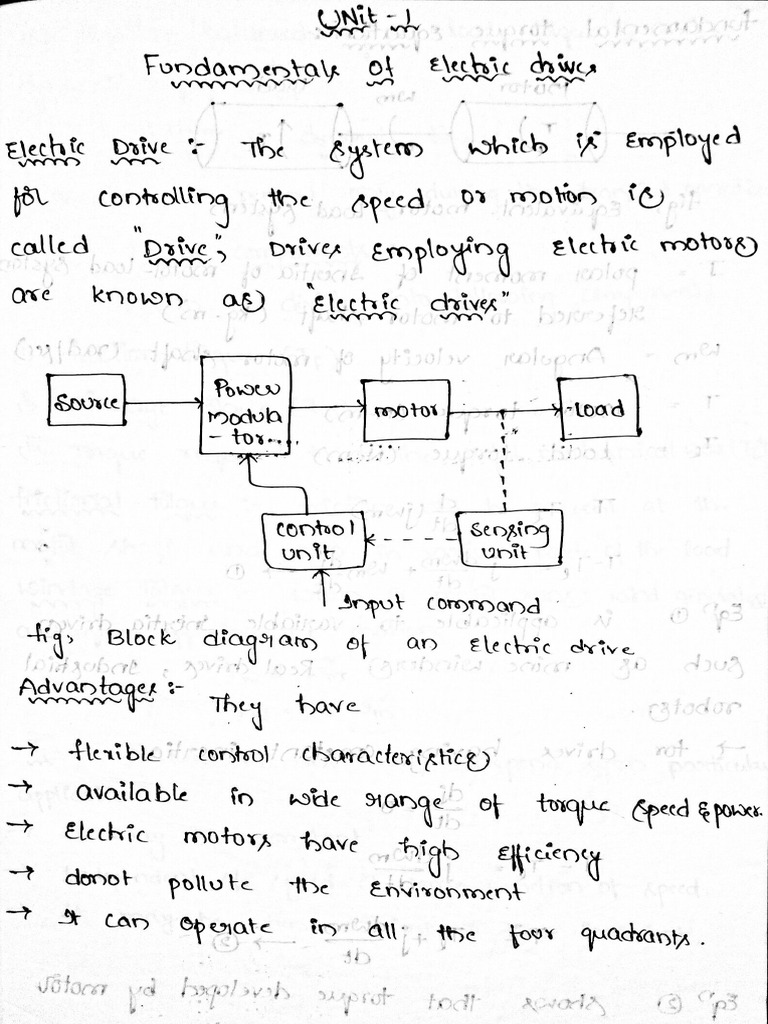 UNit - 1
Fundamentals of Electric drives
Electric Drive :- The system which is Employed
for controlling the speed or motion is
called "Drive", Drives Employing Electric motors
are known as "Electric drives"
Source
Power
modula
- tor....
motor
Load
control
unit
sensing
unit
Input command
fig, Block diagram of an Electric drive
Advantages :- They have
→ flexible control characteristics
→ available in wide range of torque speed & power.
→ Electric motors have high Efficiency
→ donot pollute the Environment
→ It can operate in all the four quadrants.